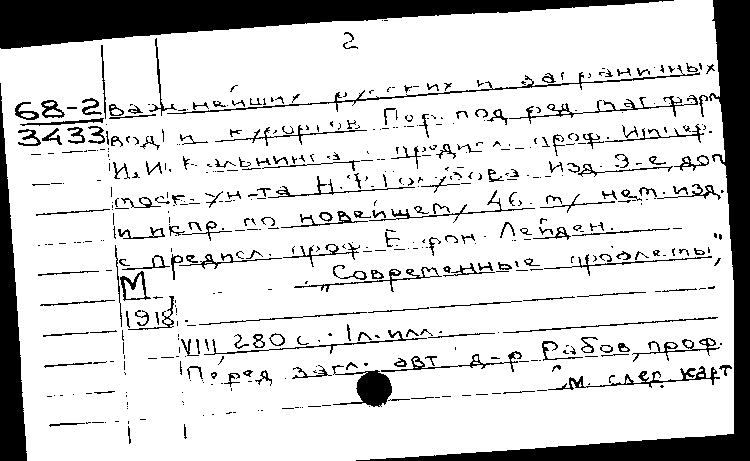 2
68-2
3433
важнейших русских и заграничных
вод и курортов Пер. под ред. маг. фарм
И.И. Кальнинга, предисл. проф. Импер.
моск. ун-та Н.Ф. Голубова. Изд. 9-е, доп
и испр. по новейшему 46 му нем. изд.
с предисл. проф. Е. фон. Лейден.
М „Современные проблемы",
1918.
VIII, 280 с.; 1 л. илл.
Перед загл. авт. д-р Рабов, проф.
См. след. карт